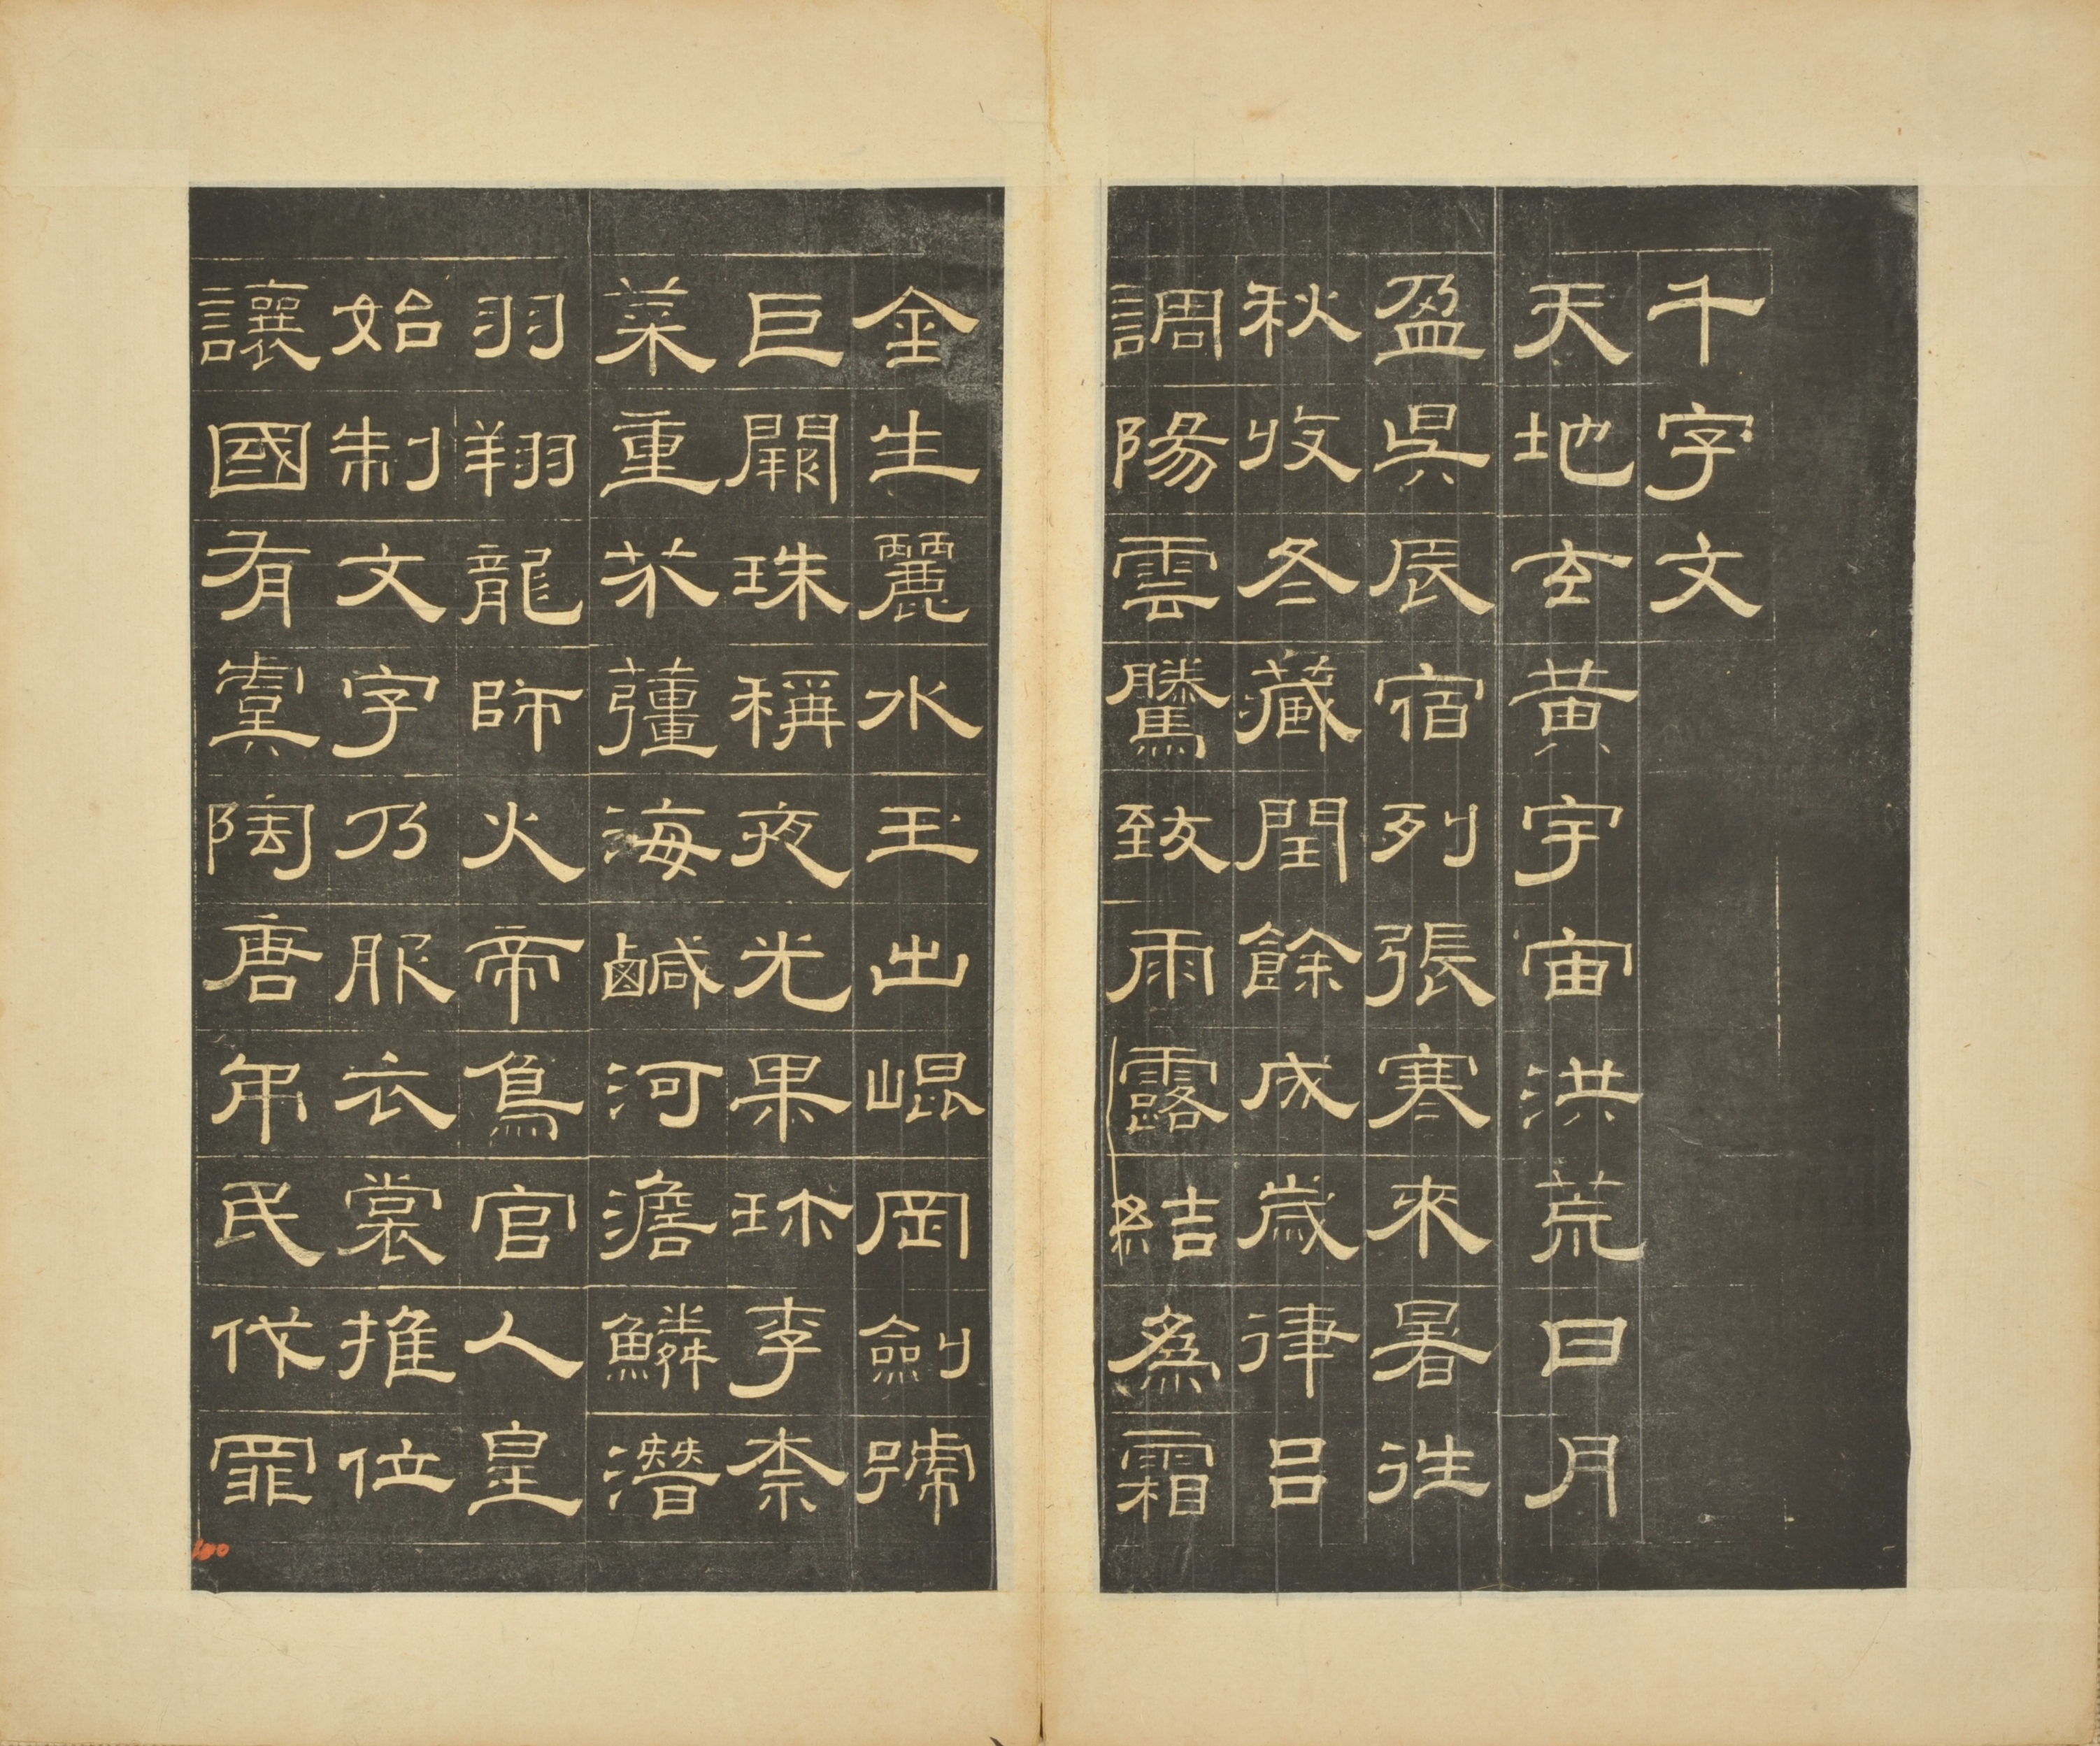 千字文
天地玄黃宇宙洪荒日月
盈昃辰宿列張寒來暑往
秋收冬藏閏餘成歲律呂
調陽雲騰致雨露結為霜
金生麗水玉出崐岡劍號
巨闕珠稱夜光果珎李柰
菜重芥薑海鹹河澹鱗潛
羽翔龍師火帝鳥官人皇
始制文字乃服衣裳推位
讓國有虞陶唐弔民伐罪